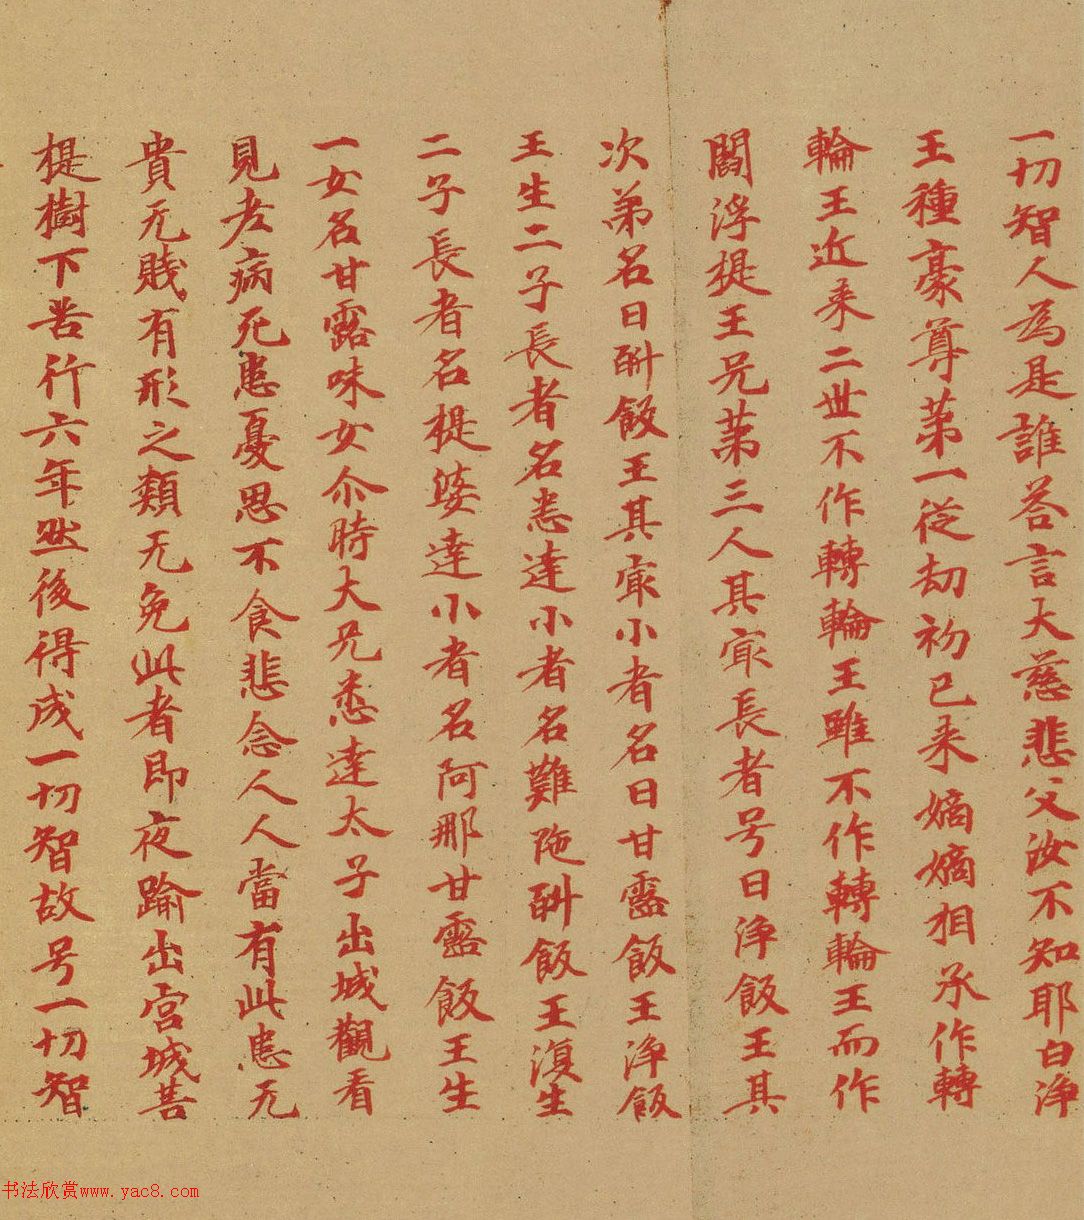 一切智人為是誰荅言大慈悲父汝不知耶白淨
王種豪尊苐一従劫初已来嫡嫡相承作轉
輪王近来二世不作轉輪王雖不作轉輪王而作
閻浮提王兄苐三人其㝡長者号曰淨飯王其
次苐名曰斛飯王其㝡小者名曰甘露飯王淨飯
王生二子長者名悉達小者名難陁斛飯王復生
二子長者名提婆達小者名阿那甘露飯王生
一女名甘露味女尒時大兄悉達太子出城觀看
見老病死患憂思不食悲念人人當有此患无
貴无賤有形之類无免此者即夜踰出宮城菩
提樹下苦行六年然後得成一切智故号一切智
书法欣赏www.yac8.com